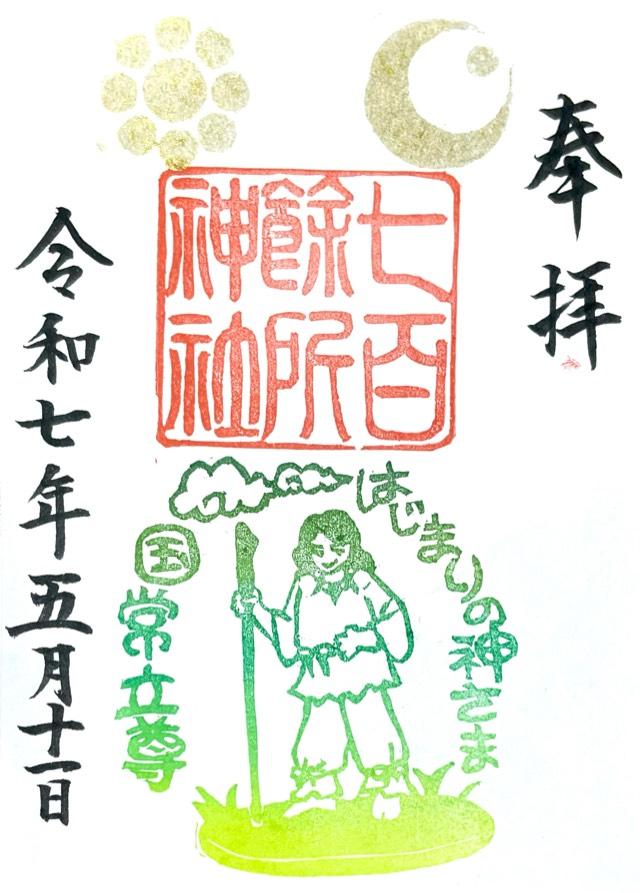 奉拝
七百
餘所
神社
はじまりの神さま
国常立尊
令和七年五月十一日